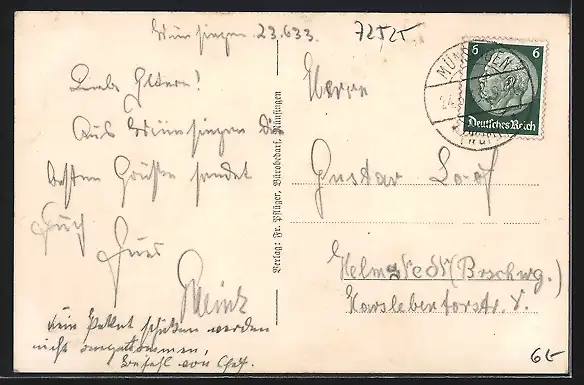 Münsingen 23.6.33.
72525
Liebe Eltern!
Aus Münsingen die
besten Grüße sendet
Euch
Euer
Heinz
Kein Paket schicken werden
nicht angenommen,
Befehl von Chef.
Verlag: Fr. Pflüger, Bürobedarf, Münsingen
6 6
Deutsches Reich
MÜNSINGEN
Herrn
Gustav
Helmstedt (Brschwg.)
Karslebentorstr. 8.